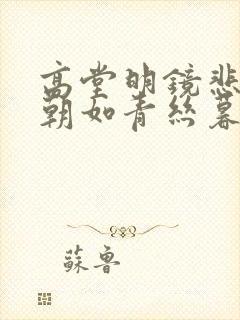 高堂明鏡悲
朝如青絲暮
蘇魯